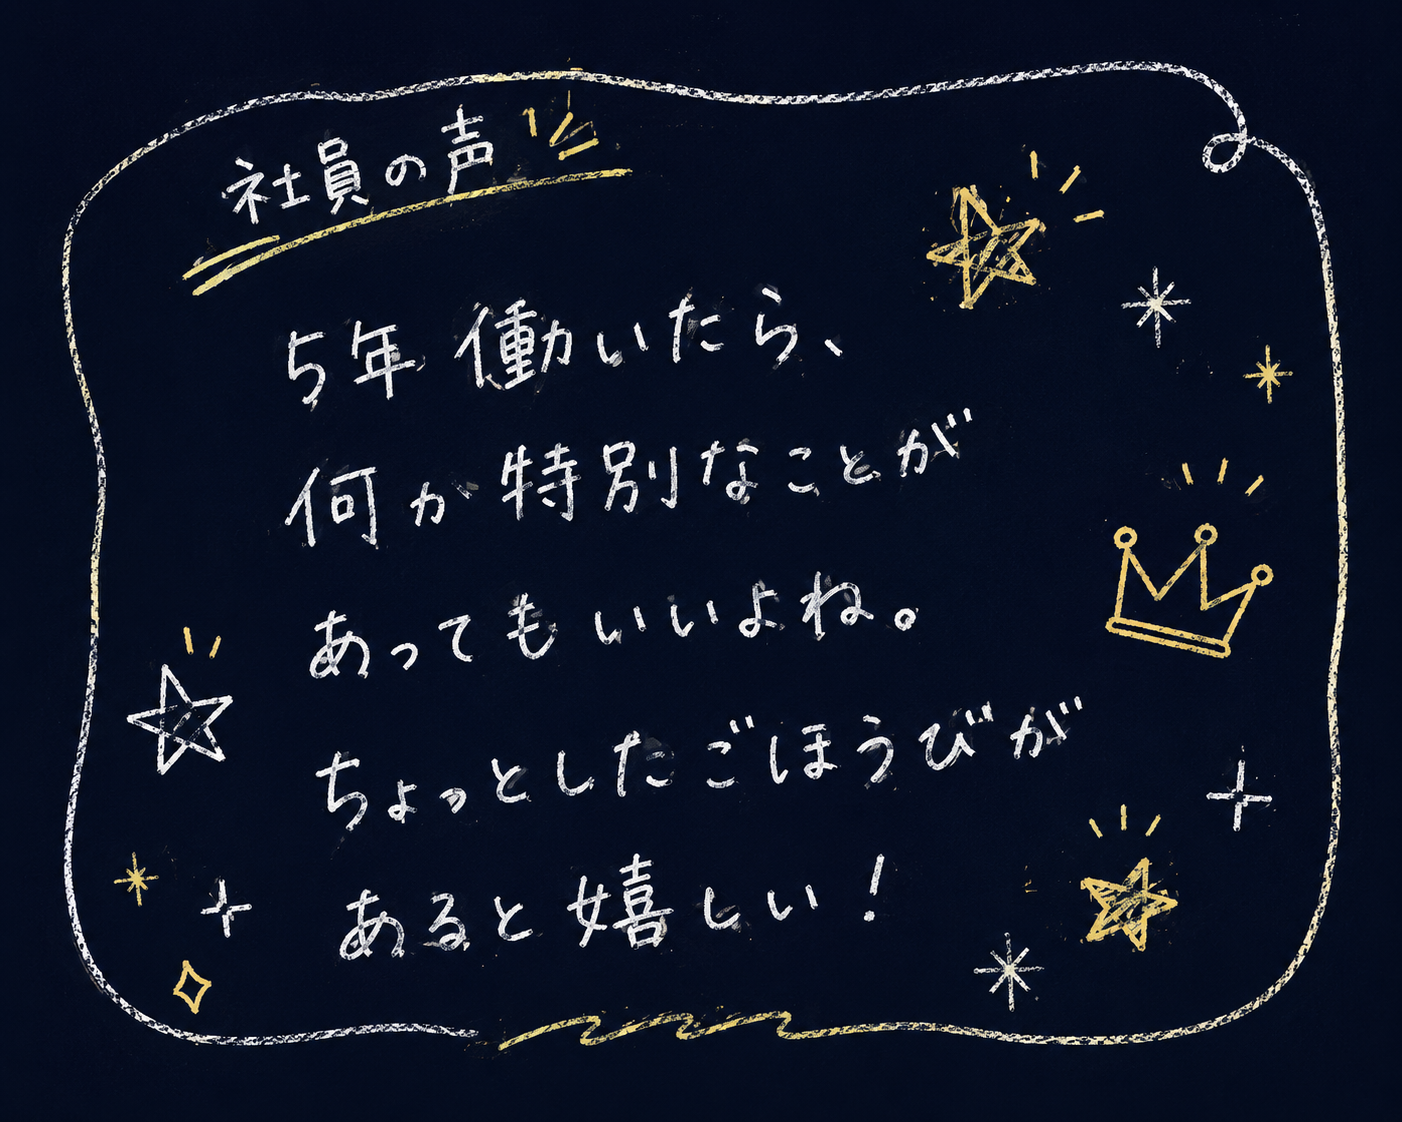 社員の声
5年働いたら、
何か特別なことが
あってもいいよね。
ちょっとしたごほうびが
あると嬉しい！